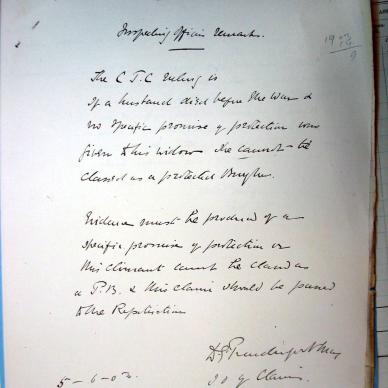 Inspecting Officers remarks.
19 03
14
9
The C.J.C ruling is
if a husband died before the war &
no specific promise of protection was
given to his widow she cannot be
classed as a protected Burgher.
Evidence must be produced of a
specific promise of protection or
this claimant cannot be classed as
a P.B. & this claim should be passed
to the Repatriation
Maj
I O of Claims.
5-6-03.